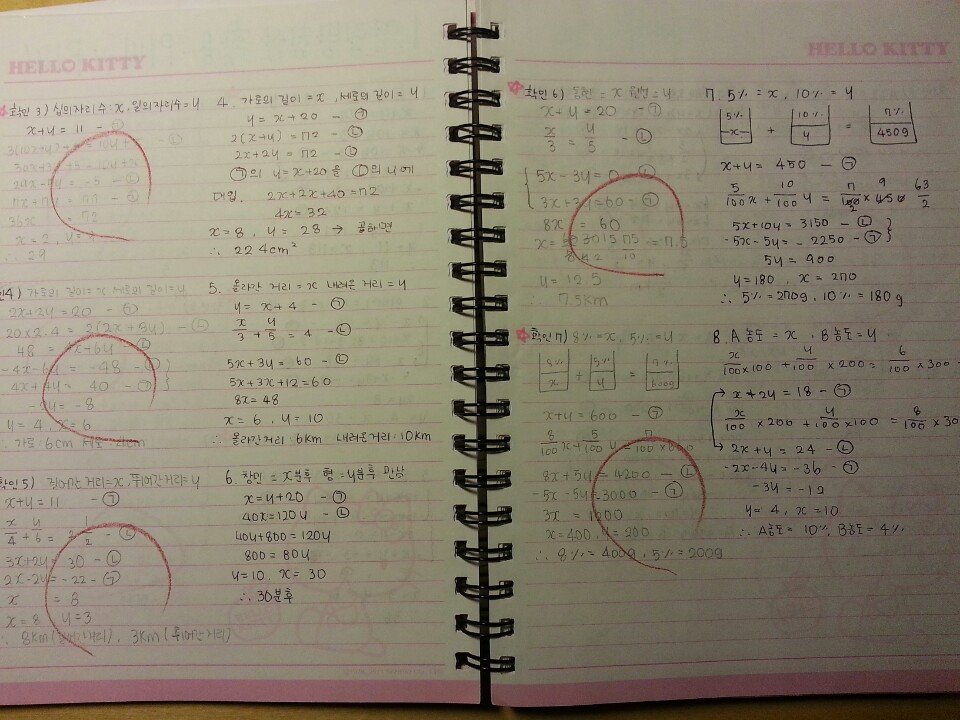 HELLO KITTY
확인 3) 십의자리 수 : x, 일의자리수 = y
x+y = 11 - ㉠
= -5 - ㉡
= 72
x = 2, y =
∴ 29
4. 가로의 길이 = x, 세로의 길이 = y
y = x+20 - ㉠
2(x+y) = 72 - ㉡
2x+2y = 72 - ㉡
㉠의 y=x+20을 ㉡의 y에
대입 2x+2x+40=72
4x=32
x=8, y = 28 → 곱하면
∴ 224cm²
4) 가로의 길이=x 세로의 길이=y
2x+2y = 20 - ㉠
20×2.4 = 2(2x+3y) - ㉡
48 = 4x+6y - ㉡
-4x-6y = -48 - ㉡
4x+4y = 40 - ㉠
-2y = -8
y = 4, x = 6
∴ 가로 : 6cm 세로 : 4cm
5. 올라간 거리 = x 내려온 거리 = y
y = x+4 - ㉠
x/3 + y/5 = 4 - ㉡
5x+3y = 60 - ㉡
5x+3x+12=60
8x=48
x = 6, y = 10
∴ 올라간거리:6km 내려온거리:10km
확인 5) 걸어간거리=x, 뛰어간거리=y
x+y = 11 - ㉠
x/4 + y/6 = 2 1/2 - ㉡
3x+2y = 30 - ㉡
2x-2y = -22 - ㉠
x = 8
x = 8 y=3
∴ 8km(걸어간거리), 3km(뛰어간거리)
6. 창민 = x분후 형 = y분후 만남
x=y+20 - ㉠
40x=120y - ㉡
40y+800=120y
800 = 80y
y=10, x = 30
∴ 30분후
HELLO KITTY
확인 6) = x = y
x+y = 20 - ㉠
x/3 = y/5 - ㉡
5x-3y = 0 - ㉡
3x+3y=60 - ㉠
8x = 60
= 7.5
y = 12.5
∴ 7.5km
확인 7) 8%=x, 5%=y
8% x + 5% y = 7% 600g
x+y = 600 - ㉠
8/100x + 5/100y = 7/100×600
8x+5y = 4200 - ㉡
-5x-5y=-3000 - ㉠
3x = 1200
x=400, y=200
∴ 8%=400g, 5%=200g
7. 5% = x, 10% = y
5% x + 10% y = 7% 450g
x+y = 450 - ㉠
5/100x + 10/100y = 7/100×450 9 63/2
5x+10y = 3150 - ㉡
-5x-5y= -2250 - ㉠
5y = 900
y=180, x = 270
∴ 5%=270g, 10%=180g
8. A농도 = x, B농도 = y
x/100×100 + y/100×200 = 6/100×300
x+2y = 18 - ㉠
x/100×200 + y/100×100 = 8/100×30
2x+y = 24 - ㉡
-2x-4y=-36 - ㉠
-3y = -12
y = 4, x=10
∴ A농도= 10%, B농도=4%